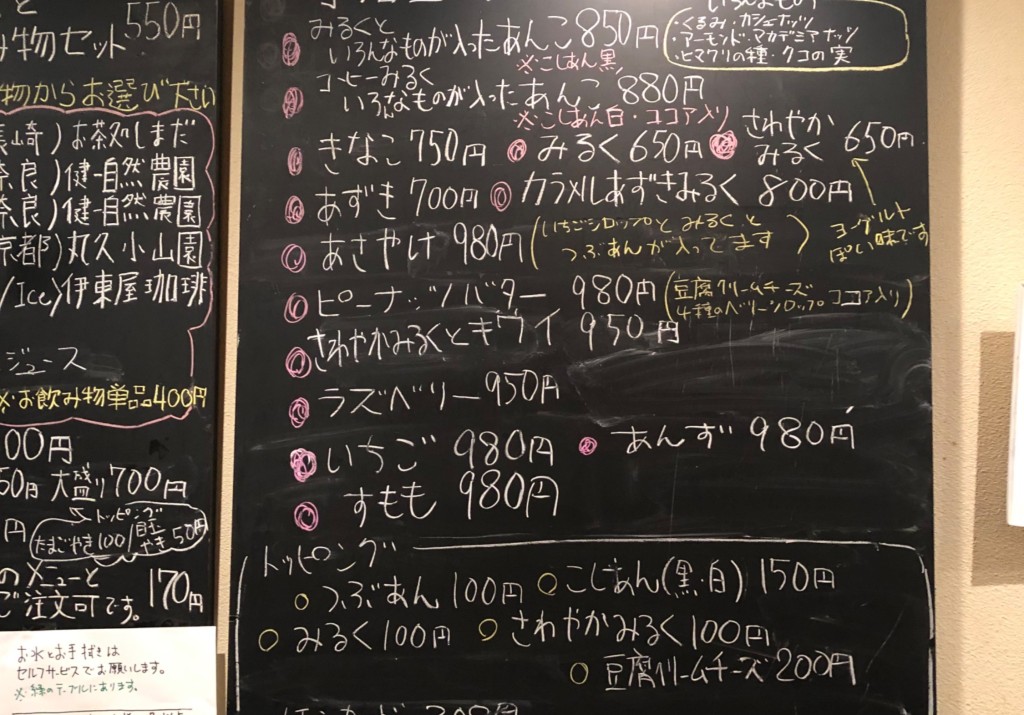 み物セット 550円
物からお選び下さい
長崎)お茶処しまだ
奈良)健一自然農園
奈良)健一自然農園
京都)丸久小山園
/Ice)伊東屋珈琲
ジュース
※お飲み物単品400円
00円
50円 大盛り700円
円
トッピング
たまごやき100/目玉やき50円
のメニューと
ご注文可です。 170円
お水とお手拭きは
セルフサービスでお願いします。
※緑のテーブルにあります。
みるくと
いろんなものが入ったあんこ 850円
※こしあん黒
いろんなもの
・くるみ・カシューナッツ
・アーモンド・マカデミアナッツ
・ヒマワリの種・クコの実
コーヒーみるく
いろんなものが入ったあんこ 880円
※こしあん白・ココア入り
きなこ 750円
みるく 650円
さわやか
みるく 650円
ヨーグルト
ぽい味です
あずき 700円
カラメルあずきみるく 800円
あさやけ 980円
(いちごシロップとみるくと
つぶあんが入ってます)
ピーナッツバター 980円
(豆腐クリームチーズ
4種のベリーシロップ ココア入り)
さわやかみるくとキウイ 950円
ラズベリー 950円
いちご 980円
あんず 980円
すもも 980円
トッピング
つぶあん 100円
こしあん(黒・白) 150円
みるく 100円
さわやかみるく 100円
豆腐クリームチーズ 200円